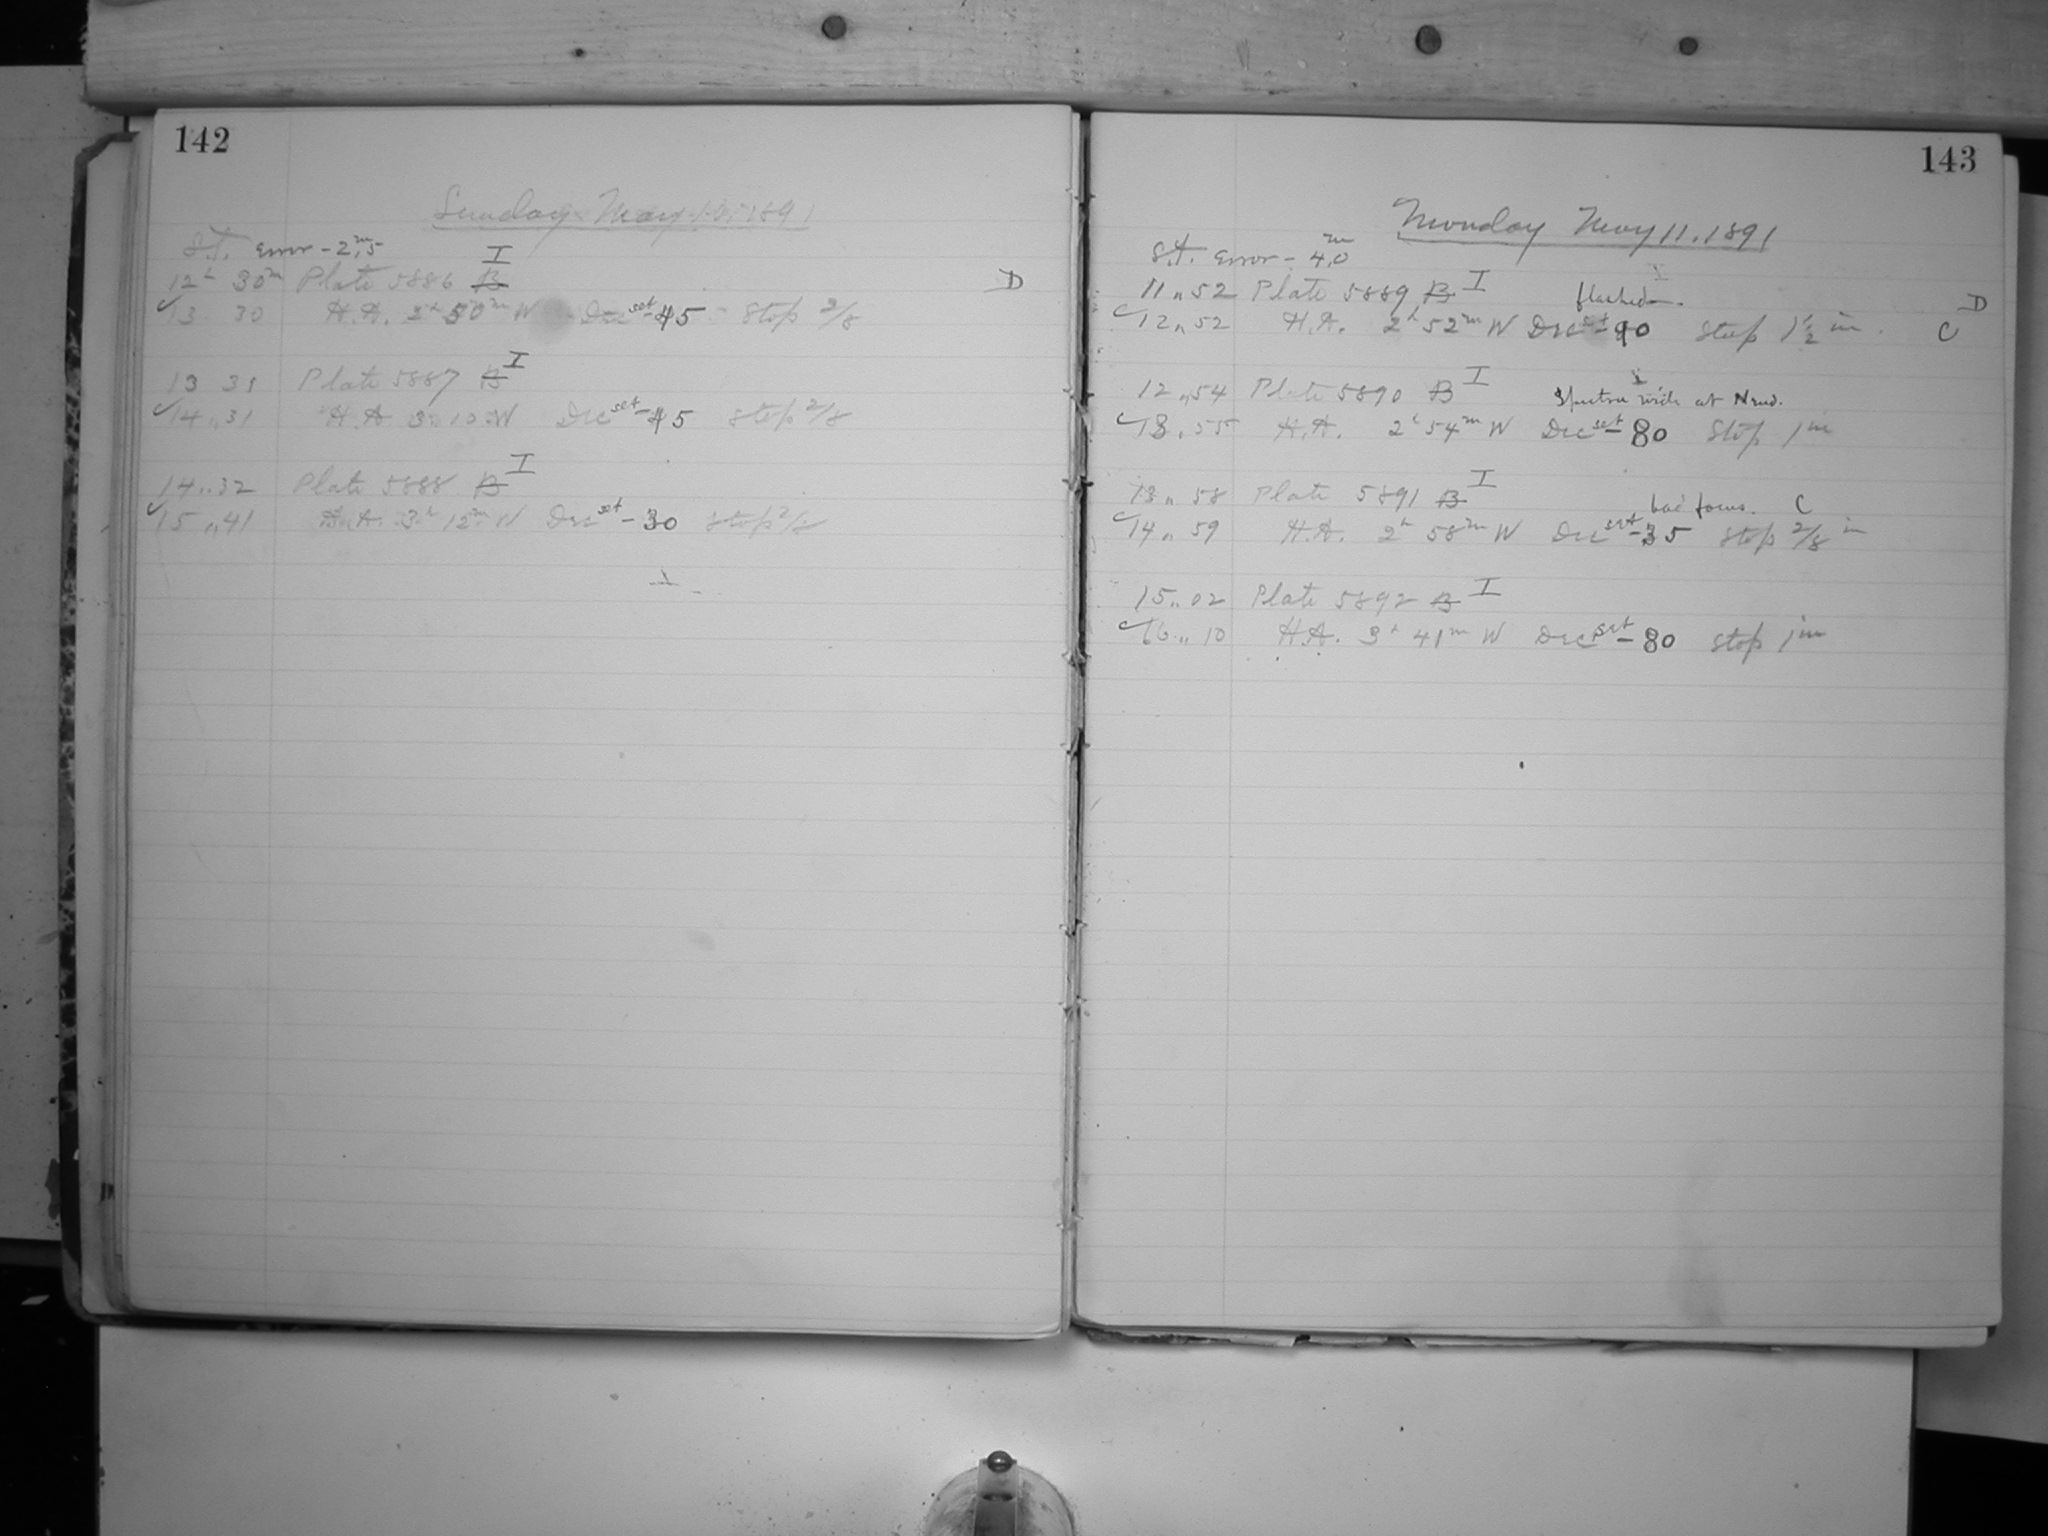 142
Sunday May 10. 1891
S.T. Error - 2.5 m
12h 30m Plate 5886 B I D
13 30 H.A. 2h 50m W Dec set -45 Stop 2/8
13 31 Plate 5887 B I
14 31 H.A. 3 10 W Dec set -45 Stop 2/8
14 32 Plate 5888 B I
15 41 H.A. 3h 12m W Dec set -30 Stop 2/8
143
Monday May 11. 1891
S.T. Error - 4.0 m
11 52 Plate 5889 B I flashed. D
12 52 H.A. 2h 52m W Dec set -90 Stop 1 1/2 in. C
12 54 Plate 5890 B I Spectra wide at N end.
13 55 H.A. 2h 54m W Dec set -80 Stop 1 in
13 58 Plate 5891 B I bad focus. C
14 59 H.A. 2h 58m W Dec set -35 Stop 2/8 in
15 02 Plate 5892 B I
16 10 H.A. 3h 41m W Dec set -80 Stop 1 in